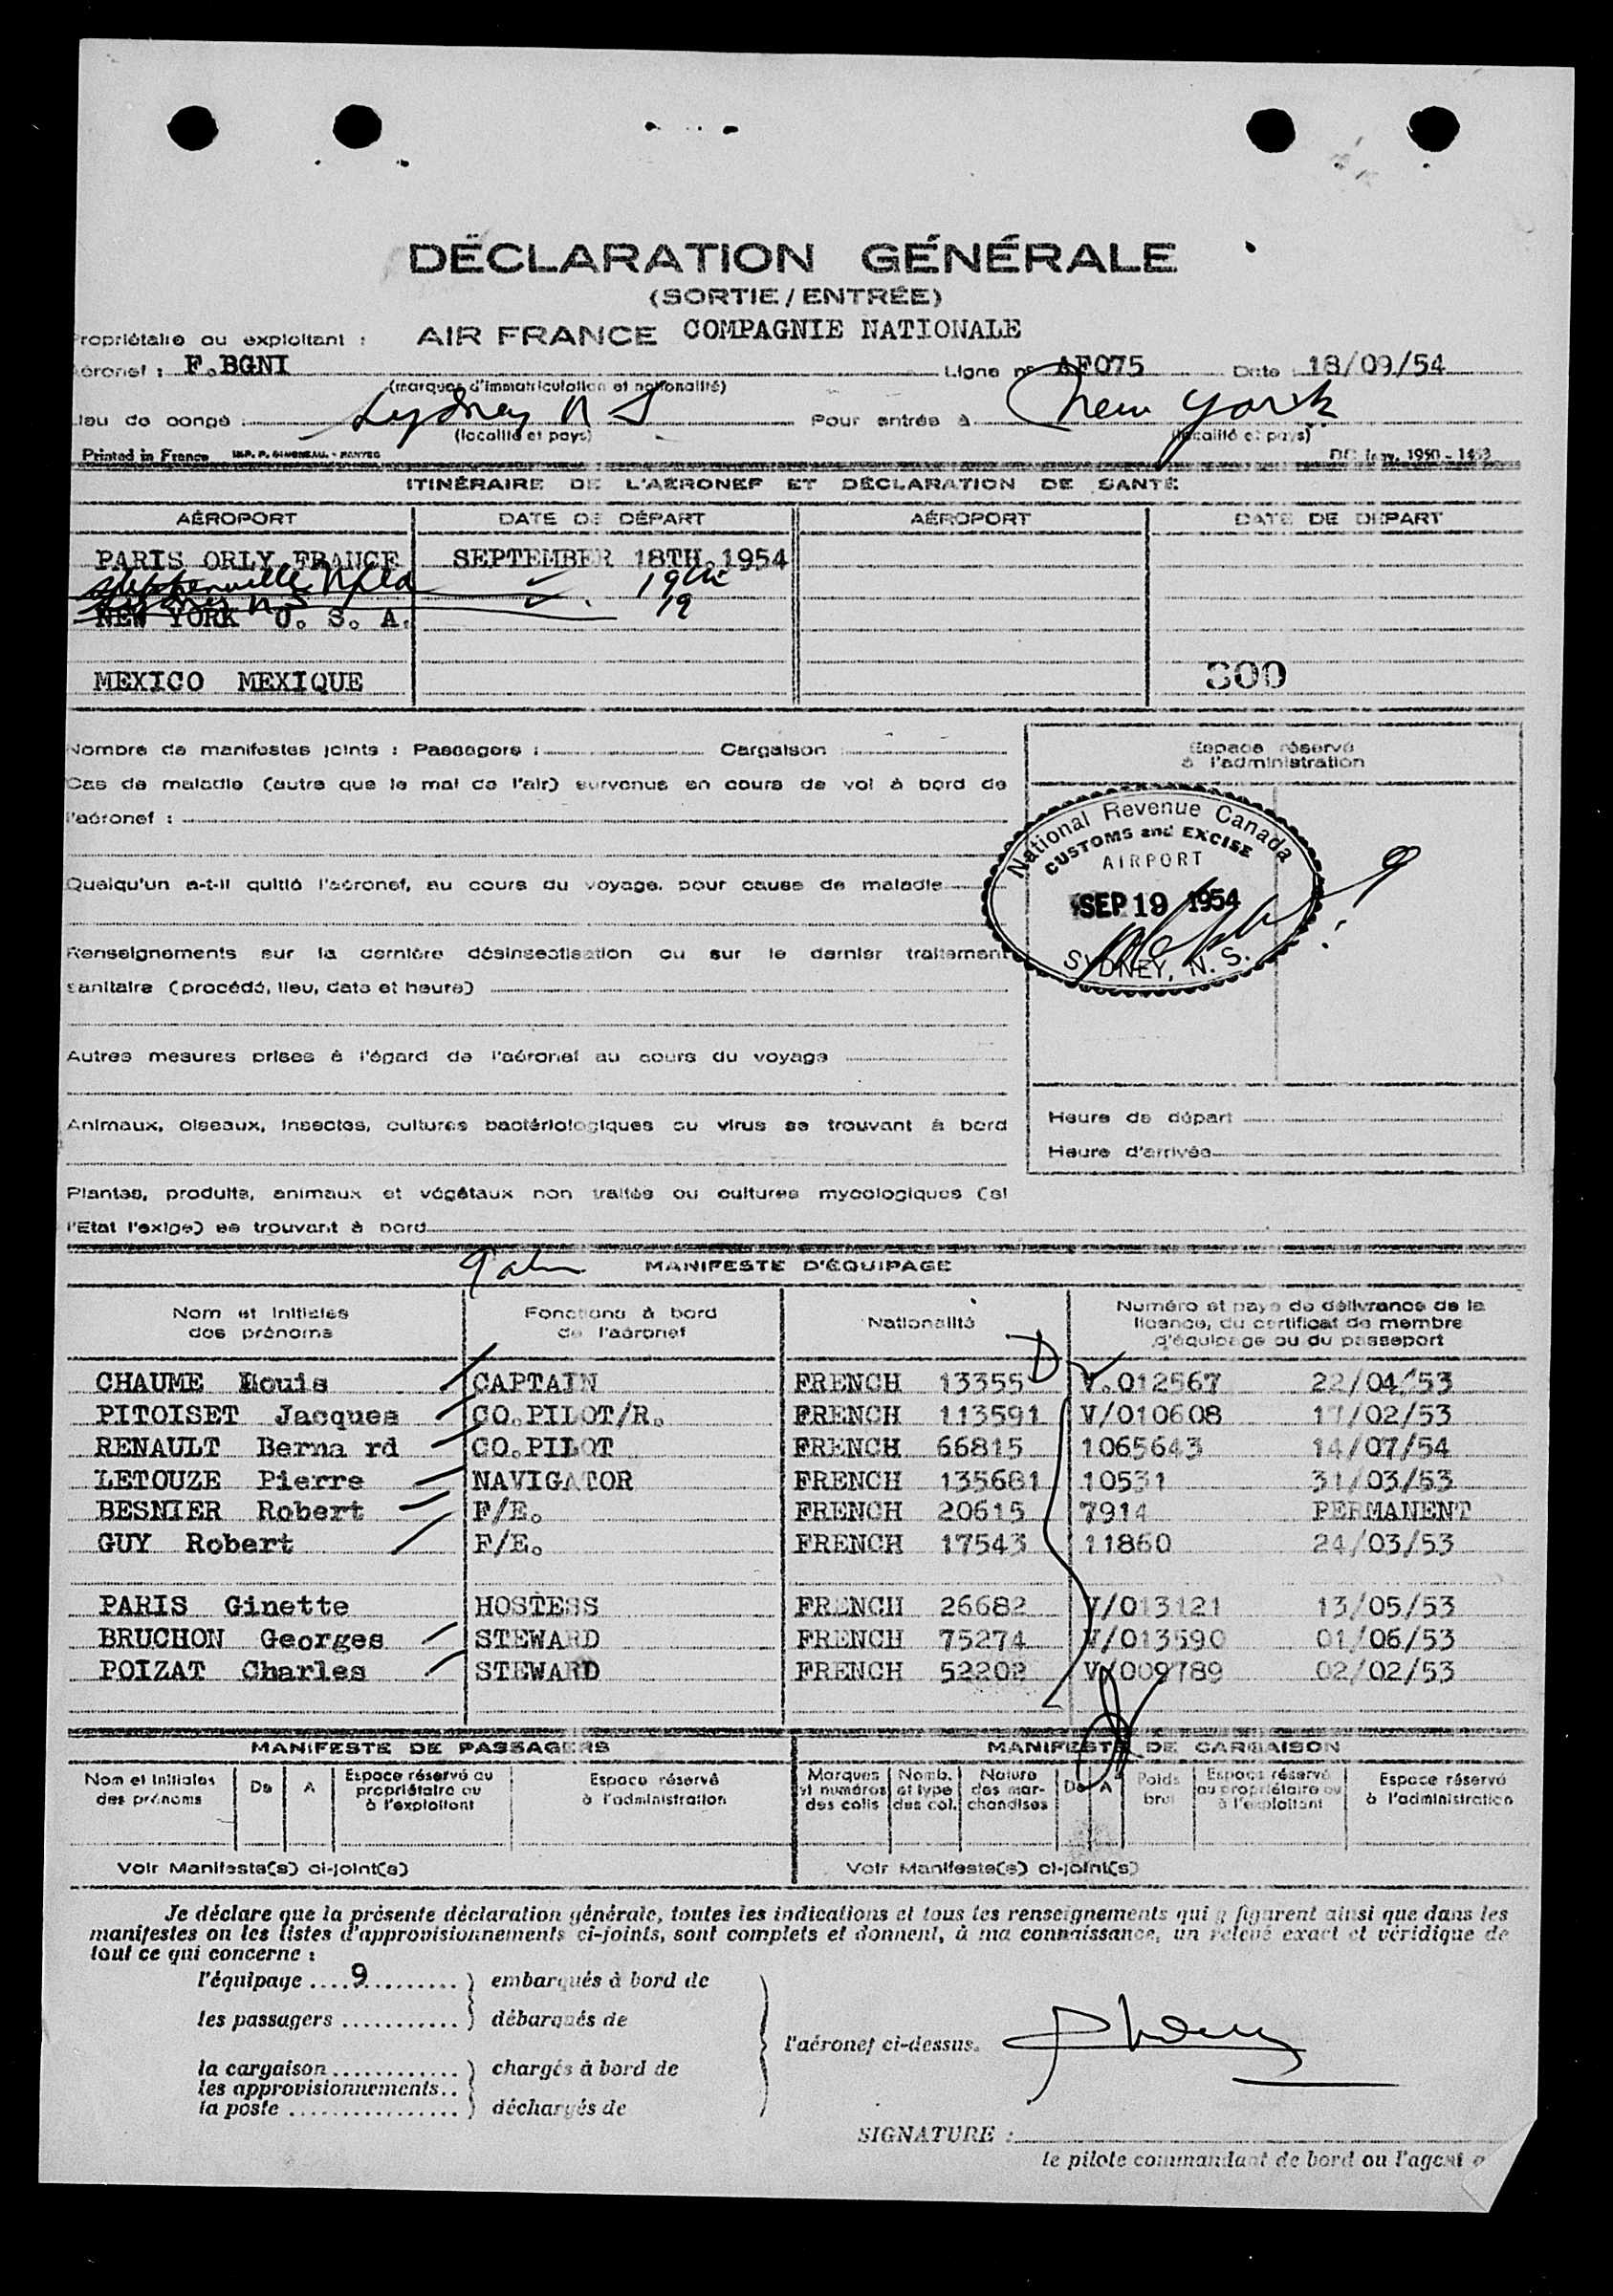 DÉCLARATION GÉNÉRALE
(SORTIE / ENTRÉE)
Propriétaire ou exploitant : AIR FRANCE COMPAGNIE NATIONALE
Aéronef : F.BGNI Ligne nº AF075 Date 18/09/54
(marques d'immatriculation et nationalité)
Lieu de congé : Sydney N S Pour entrée à New York
(localité et pays) (localité et pays)
Printed in France
ITINÉRAIRE DE L'AÉRONEF ET DÉCLARATION DE SANTÉ
AÉROPORT DATE DE DÉPART AÉROPORT DATE DE DÉPART
PARIS ORLY FRANCE SEPTEMBER 18TH.1954
Stephenville Nfld 19th
Sydney N S 19
NEW YORK U. S. A.
MEXICO MEXIQUE 300
Nombre de manifestes joints : Passagers : Cargaison
Espace réservé
à l'administration
Cas de maladie (autre que le mal de l'air) survenus en cours de vol à bord de
l'aéronef :
National Revenue Canada
CUSTOMS and EXCISE
AIRPORT
SEP 19 1954
SYDNEY, N. S.
Quelqu'un a-t-il quitté l'aéronef, au cours du voyage, pour cause de maladie
Renseignements sur la dernière désinsectisation ou sur le dernier traitement
sanitaire (procédé, lieu, date et heure)
Autres mesures prises à l'égard de l'aéronef au cours du voyage
Animaux, oiseaux, insectes, cultures bactériologiques ou virus se trouvant à bord
Heure de départ
Heure d'arrivée
Plantes, produits, animaux et végétaux non traités ou cultures mycologiques (si
l'Etat l'exige) se trouvant à bord
MANIFESTE D'ÉQUIPAGE
Nom et initiales
des prénoms
Fonctions à bord
de l'aéronef
Nationalité
Numéro et pays de délivrance de la
licence, du certificat de membre
d'équipage ou du passeport
CHAUME Louis CAPTAIN FRENCH 13355 V.012567 22/04/53
PITOISET Jacques CO.PILOT/R. FRENCH 113591 V/010608 17/02/53
RENAULT Berna rd CO.PILOT FRENCH 66815 1065643 14/07/54
LETOUZE Pierre NAVIGATOR FRENCH 135681 10531 31/03/53
BESNIER Robert F/E. FRENCH 20615 7914 PERMANENT
GUY Robert F/E. FRENCH 17543 11860 24/03/53
PARIS Ginette HOSTESS FRENCH 26682 V/013121 13/05/53
BRUCHON Georges STEWARD FRENCH 75274 V/013590 01/06/53
POIZAT Charles STEWARD FRENCH 52202 V/009789 02/02/53
MANIFESTE DE PASSAGERS MANIFESTE DE CARGAISON
Nom et initiales
des prénoms
De
A
Espace réservé au
propriétaire ou
à l'exploitant
Espace réservé
à l'administration
Marques
et numéros
des colis
Nomb.
et type
des col.
Nature
des mar-
chandises
De
A
Poids
brut
Espace réservé
au propriétaire ou
à l'exploitant
Espace réservé
à l'administration
Voir Manifeste(s) ci-joint(s) Voir Manifeste(s) ci-joint(s)
Je déclare que la présente déclaration générale, toutes les indications et tous les renseignements qui y figurent ainsi que dans les
manifestes ou les listes d'approvisionnements ci-joints, sont complets et donnent, à ma connaissance, un relevé exact et véridique de
tout ce qui concerne :
l'équipage ....9.......... ) embarqués à bord de
les passagers ........... ) débarqués de
l'aéronef ci-dessus.
la cargaison ............ ) chargés à bord de
les approvisionnements..
la poste ................ ) déchargés de
SIGNATURE :
le pilote commandant de bord ou l'agent